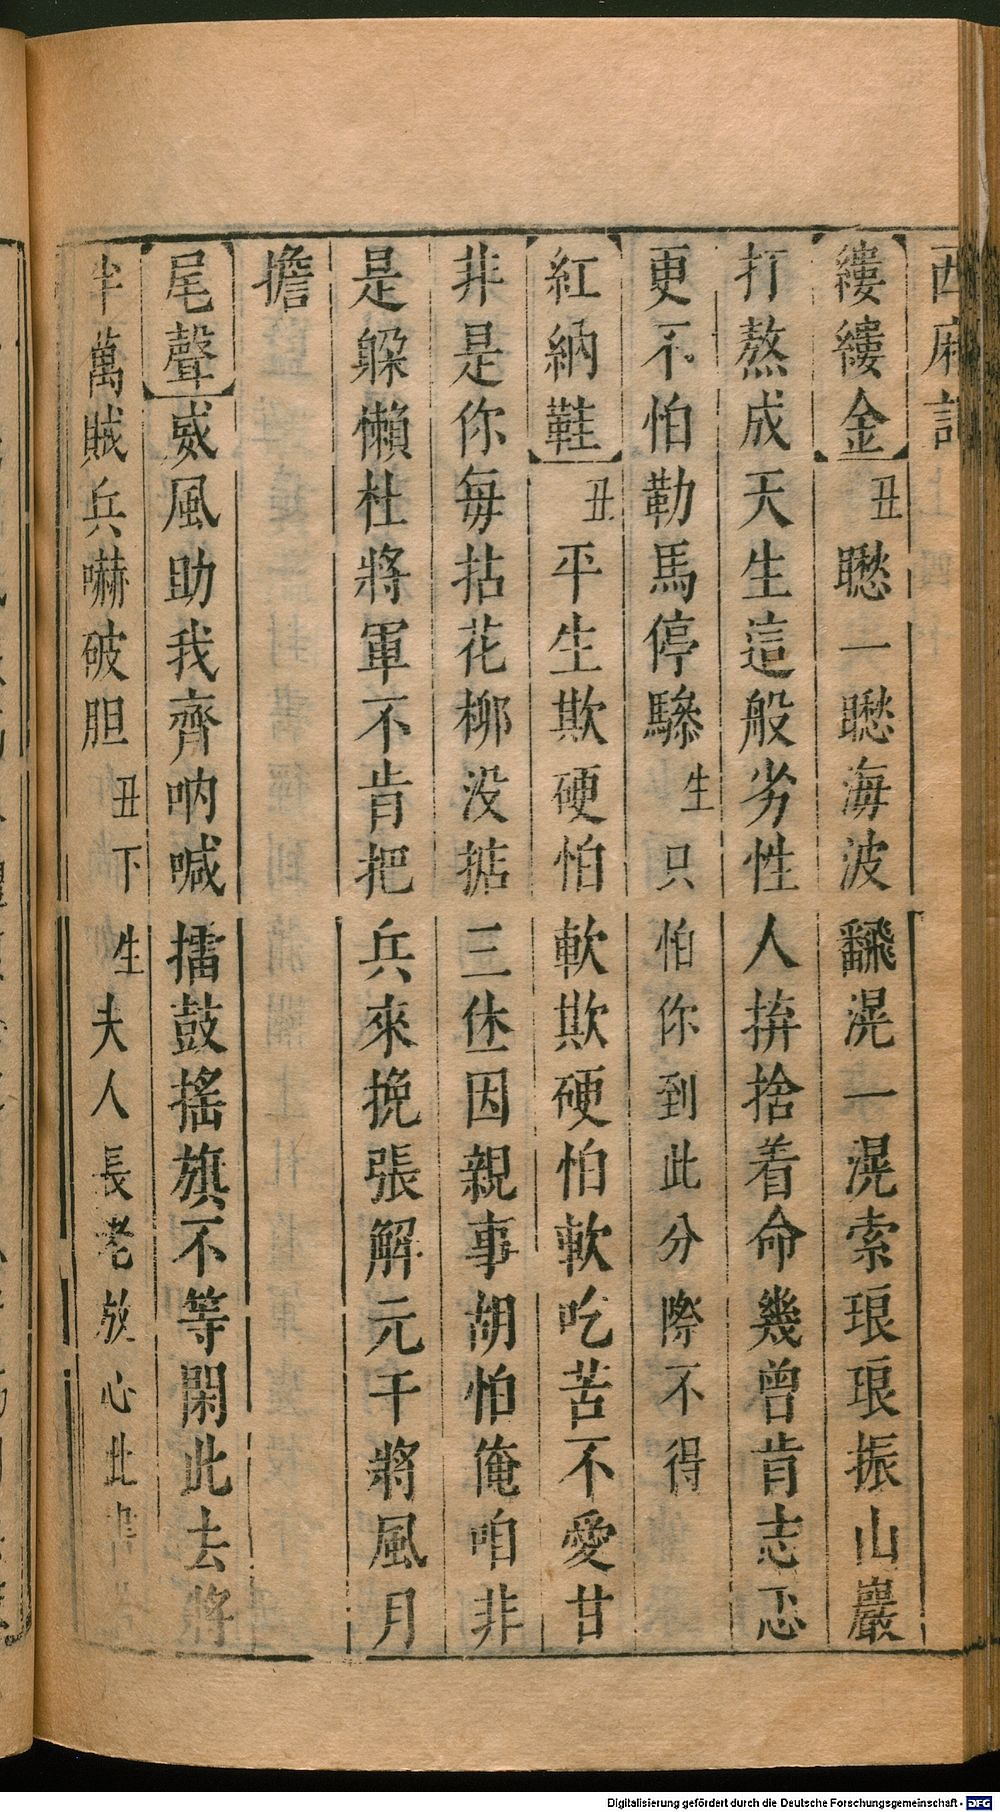 西廂記
縷縷金丑瞛一瞛海波飜滉一滉索琅琅振山巖
打熬成天生這般劣性人拚捨着命幾曾肯志忑
更不怕勒馬停驂生只怕你到此分際不得
紅納鞋丑平生欺硬怕軟欺硬怕軟吃苦不愛甘
非是你每拈花柳没掂三休因親事胡怕俺咱非
是躱懶杜將軍不肯把兵來挽張解元干將風月
擔
尾聲威風助我齊吶喊擂鼓搖旗不等閑此去將
半萬賊兵嚇破胆丑下生夫人長老放心此書
Digitalisierung gefördert durch die Deutsche Forschungsgemeinschaft - DFG